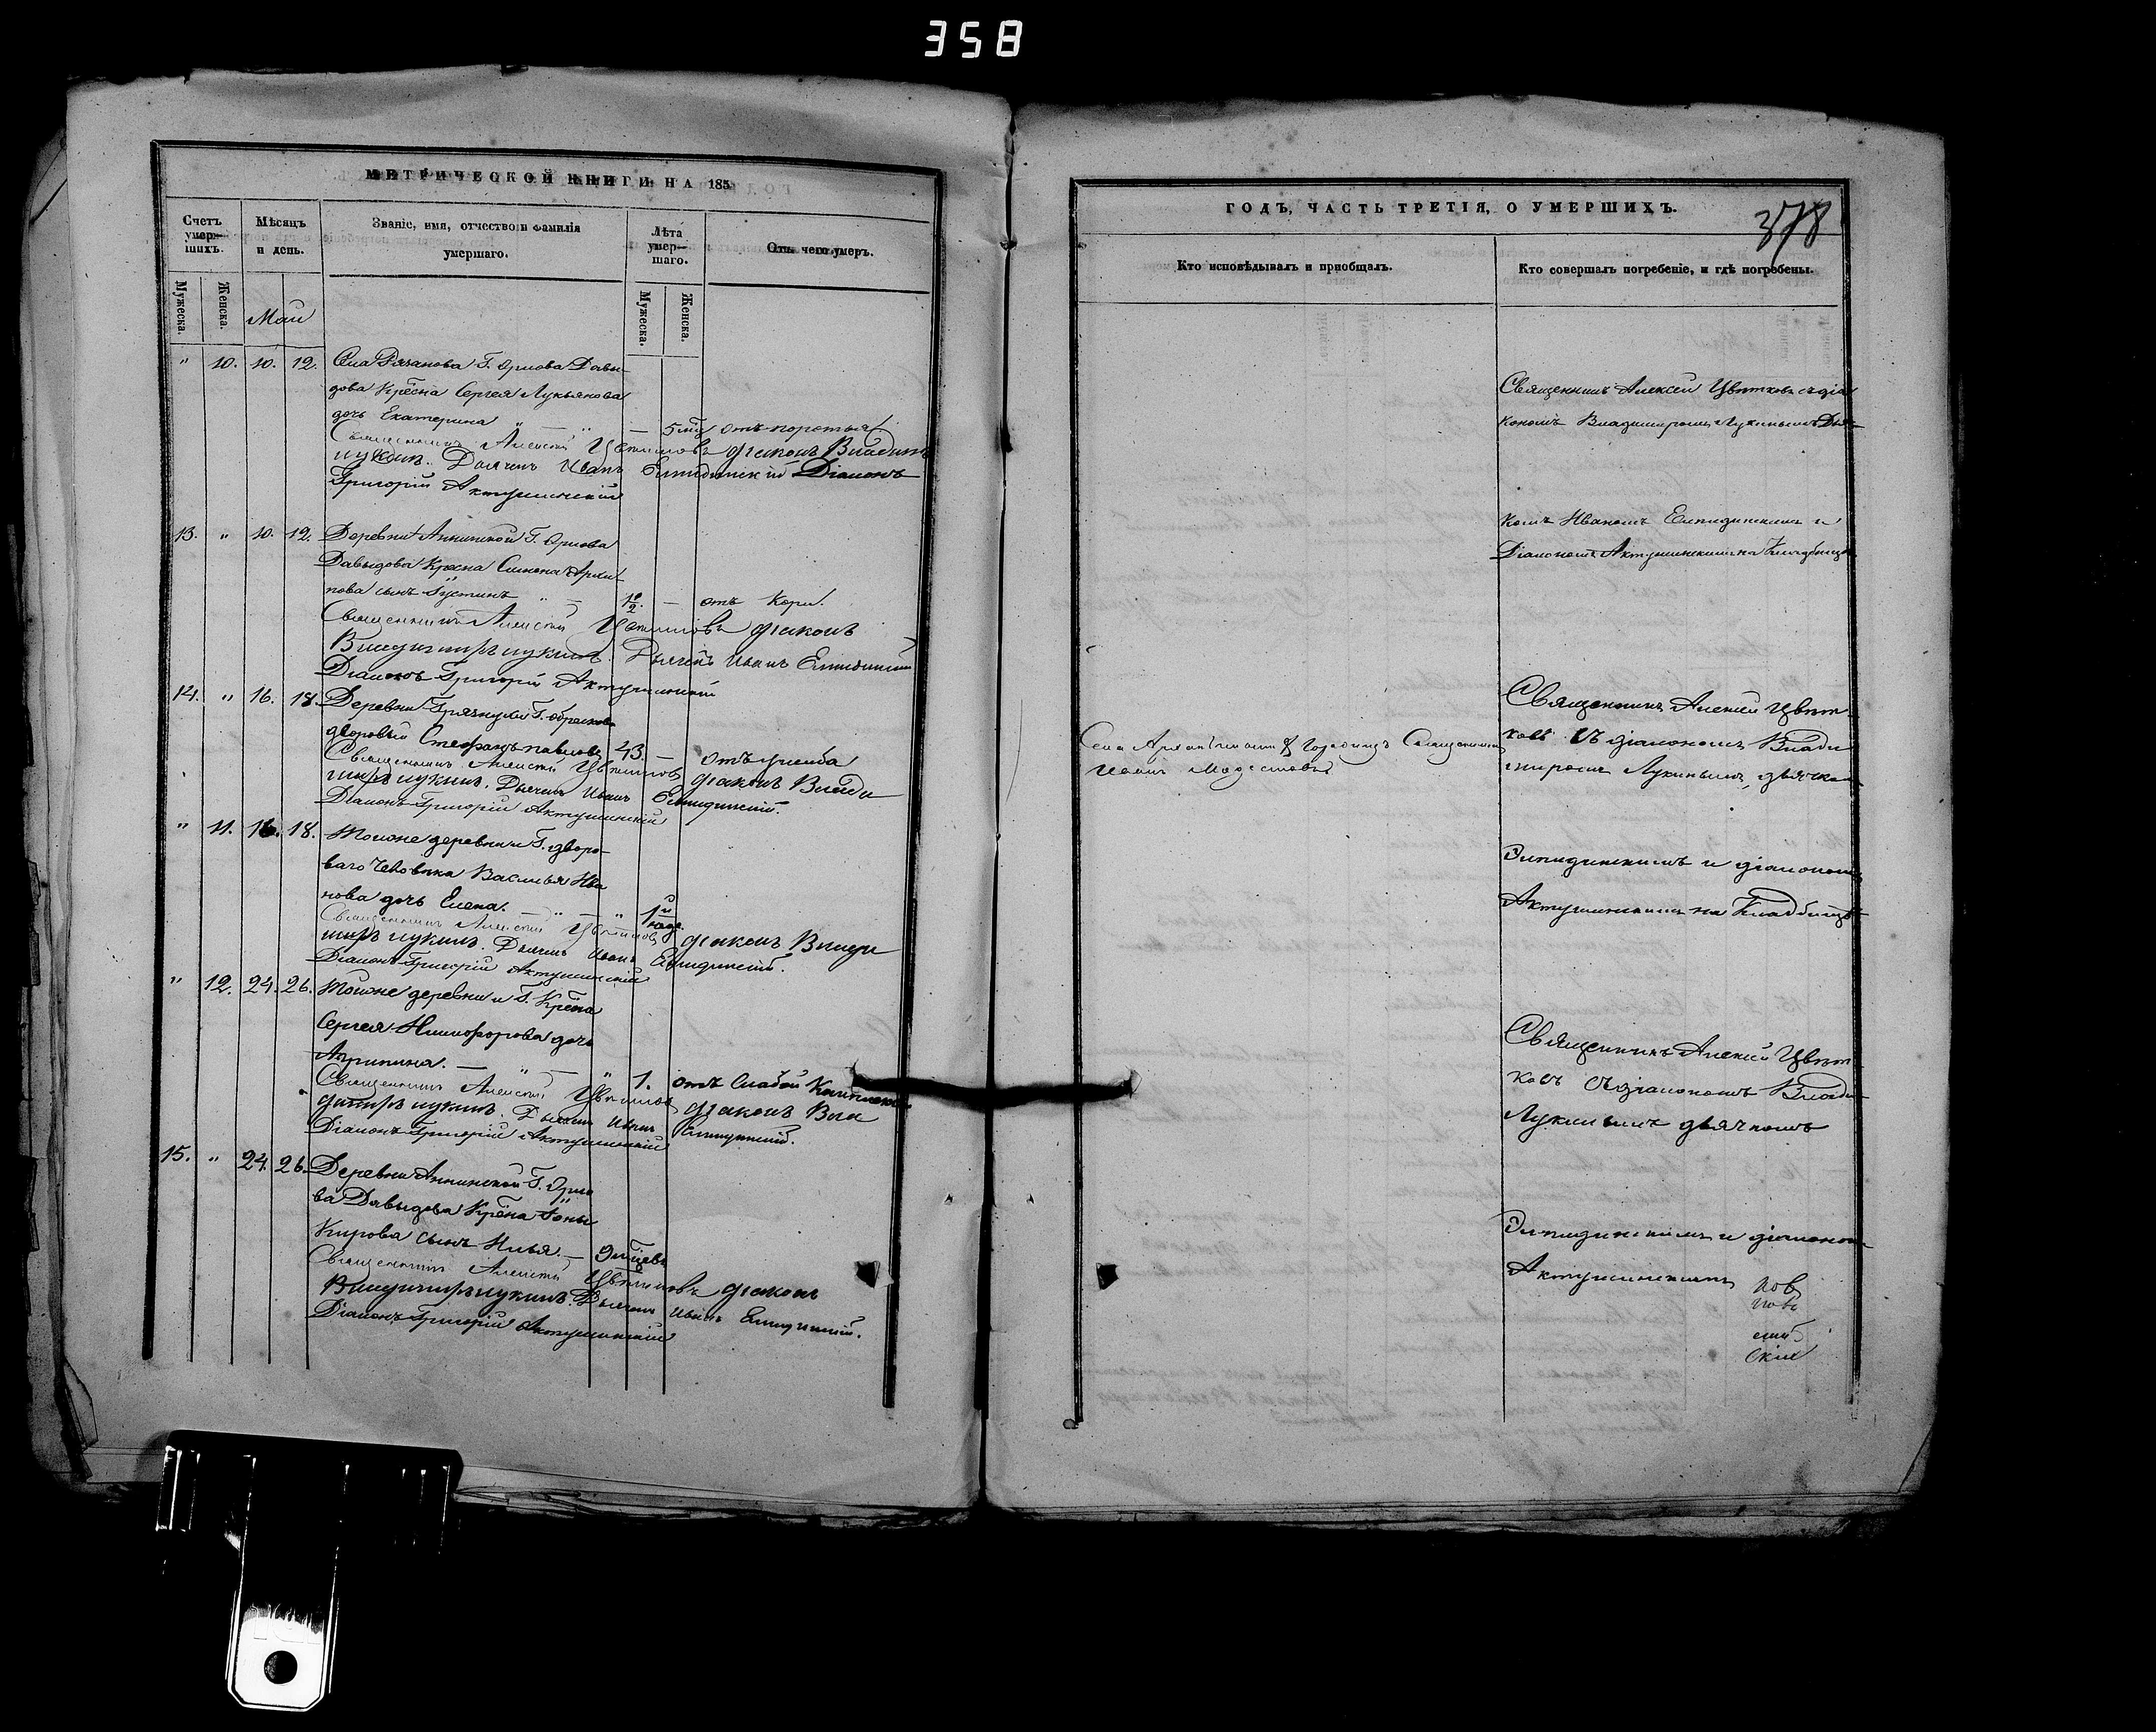 358
МЕТРИЧЕСКОЙ КНИГИ НА 185
Счетъ умер— шихъ.
Мѣсяцъ и день.
Званіе, имя, отчество и фамилія умершаго.
Лѣта умер— шаго.
Отъ чего умеръ.
Мужеска.
Женска.
Май
Мужеска.
Женска.
" 10. 10. 12. Села Рязанова Г. Орлова Давы-
дова Крестна Сергея Лукьянова
дочь Екатерина " — " — 5 отъ
Священникъ Алексей Цветковъ діаконъ Владим
Лукинъ. Дьячекъ Иванъ Елпидинскій Діаконъ
Григорій Актушинскій
13. " 10. 12. Деревни Аннинской Г. Орлова
Давыдова Крестна Симеона Архи
пова сынъ Іустинъ " — 1½. — отъ Кори.
Священникъ Алексей Цветковъ діаконъ
Владимиръ Лукинъ. Дьячекъ Иванъ Елпидинскій
Діаконъ Григорій Актушинскій
14. " 16. 18. Деревни Грязнухи Г.
дворовый Стефанъ Павловъ 43. — отъ ушиба
Священникъ Алексей Цветковъ діаконъ Влади
миръ Лукинъ. Дьячекъ Иванъ Елпидинскій.
Діаконъ Григорій Актушинскій
" 11. 16. 18. Тойже деревни и Г. дворо-
ваго человѣка Василья Ива
нова дочь Елена. — " — "
Священникъ Алексей Цветковъ діаконъ Влади
миръ Лукинъ. Дьячекъ Иванъ Елпидинскій.
Діаконъ Григорій Актушинскій
" 12. 24. 26. Тойже деревни и Г. Крестна
Сергея Никифорова дочь
Агрипина. — " — " 1. отъ Слабой Комплекц
Священникъ Алексей Цветковъ діаконъ Вла
димиръ Лукинъ. Дьячекъ Иванъ Елпидинскій.
Діаконъ Григорій Актушинскій
15. " 24. 26. Деревни Аннинской Г. Орло
ва Давыдова Крестна Іоны
Кирова сынъ Илья. —
Священникъ Алексей Цветковъ діаконъ
Владимиръ Лукинъ. Дьячекъ Иванъ Елпидинскій.
Діаконъ Григорій Актушинскій
ГОДЪ, ЧАСТЬ ТРЕТІЯ, О УМЕРШИХЪ.
378
Кто исповѣдывалъ и пріобщалъ.
Кто совершалъ погребеніе, и гдѣ погребены.
Священникъ Алексей Цвѣтковъ съ діа
кономъ Владимиромъ Лукинымъ Дья-
комъ Иваномъ Елпидинскимъ и
Діакономъ Актушинскимъ на Кладбище
Села Священникъ
Иоаннъ Модестовъ
Священникъ Алексей Цвѣт-
ковъ Съ діакономъ Влади
миромъ Лукинымъ, дьячко
Элпидинскимъ и діакономъ
Актушинскимъ на Кладбищѣ
Священникъ Алексей Цвѣт-
ковъ Съ діакономъ Влади-
Лукинымъ дьячкомъ
Элпидинскимъ и діакономъ
Актушинскимъ
ков
ского